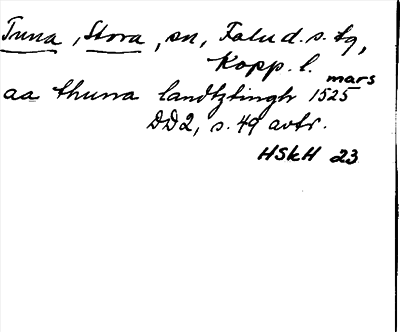 Tuna, Stora, sn, Falu d. s. tg,
Kopp. l.
mars
aa thuna landtztingh 1525
DD2, s. 49 avtr.
HSkH 23